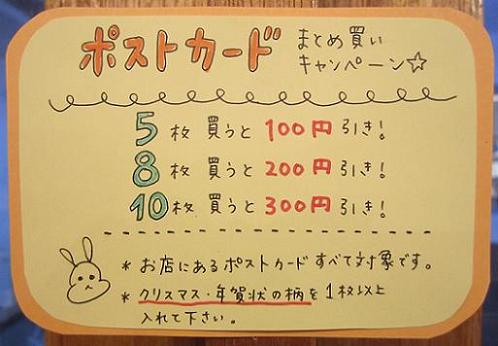 ポストカード まとめ買い
キャンペーン☆
5枚 買うと 100円引き!
8枚 買うと 200円引き!
10枚 買うと 300円引き!
* お店にあるポストカードすべて対象です。
* クリスマス・年賀状の柄を1枚以上
入れて下さい。